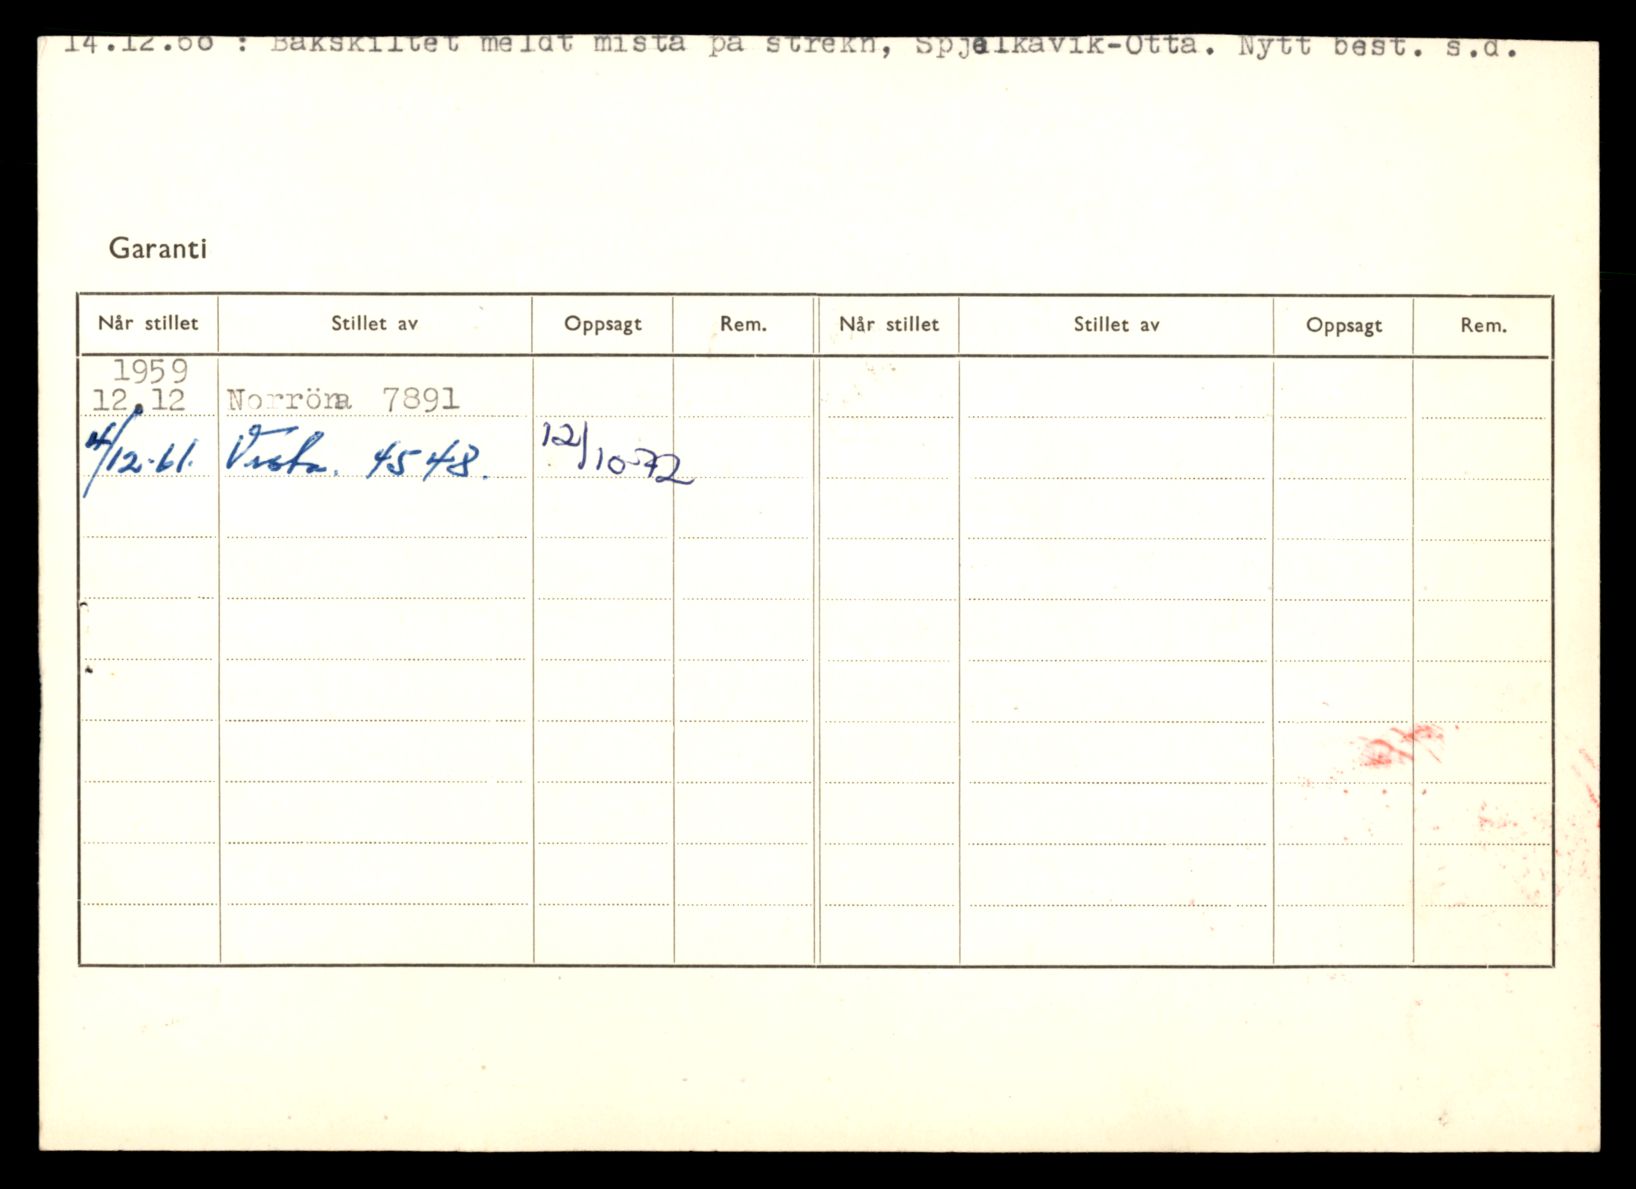 14.12.60 : Bakskiltet meldt mista på strekn, Spjelkavik-Otta. Nytt best. s.d.
Garanti
Når stillet Stillet av Oppsagt Rem. Når stillet Stillet av Oppsagt Rem.
1959
12.12 Norröna 7891
4/12-61. Vesta. 4548. 12/10-72